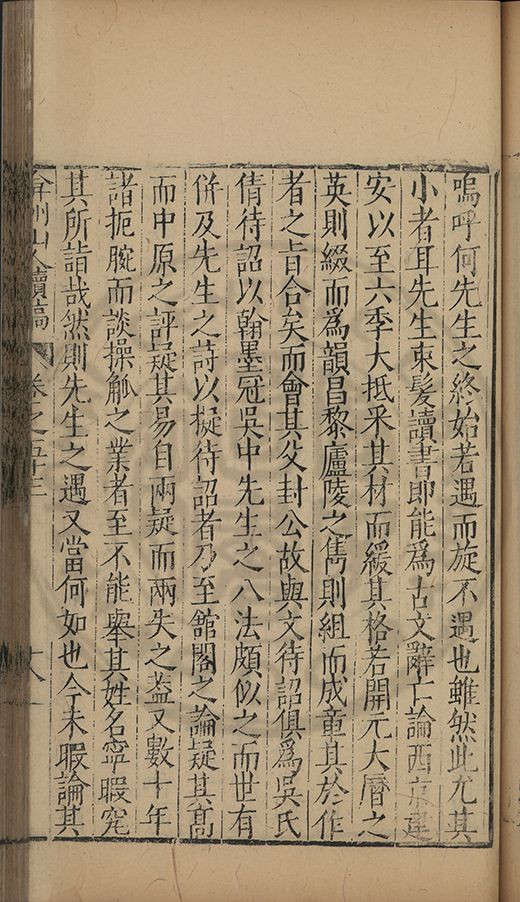 嗚呼何先生之終始若遇而旋不遇也雖然此尤其
小者耳先生束髮讀書即能爲古文辭亡論西京建
安以至六季大抵采其材而緩其格若開元大曆之
英則綴而爲韻昌黎廬陵之雋則組而成章其於作
者之旨合矣而會其父封公故與文待詔俱爲吳氏
倩待詔以翰墨冠吳中先生之八法頗似之而世有
併及先生之詩以擬待詔者乃至舘閣之論疑其高
而中原之評疑其易自兩疑而兩失之葢又數十年
諸扼腕而談操觚之業者至不能舉其姓名寧暇究
其所詣哉然則先生之遇又當何如也今未暇論其
弇州山人續稿 卷之五十三 十八